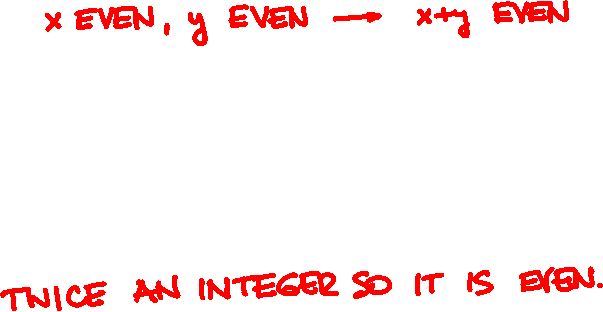 x EVEN, y EVEN → x+y EVEN
TWICE AN INTEGER SO IT IS EVEN.